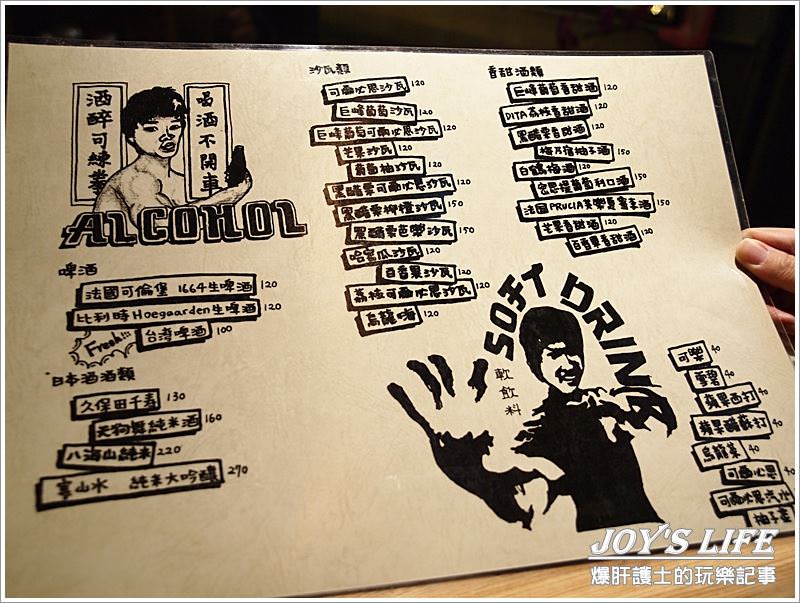 酒醉可練拳
喝酒不開車
ALCOHOL
啤酒
法國可倫堡 1664生啤酒 120
比利時Hoegaarden生啤酒 120
Fresh!!!
台灣啤酒 100
日本酒酒類
久保田千寿 130
天狗舞純米酒 160
八海山純米 220
純米大吟釀 270
沙瓦類
可爾必思沙瓦 120
巨峰葡萄沙瓦 120
巨峰葡萄可爾必思沙瓦 120
芒果沙瓦 120
葡萄柚沙瓦 120
黑醋栗可爾必思沙瓦 120
黑醋栗柳橙沙瓦 150
黑醋栗芭樂沙瓦 150
哈密瓜沙瓦 120
百香果沙瓦 120
荔枝可爾必思沙瓦 120
烏龍嗨 120
香甜酒類
巨峰葡萄香甜酒 120
DITA荔枝香甜酒 120
黑醋栗香甜酒 120
梅乃宿柚子酒 150
白鶴梅酒 120
蜜思提葡萄利口酒 150
法國PRUCIA芙樂夏蜜李酒 150
芒果香甜酒 120
百香果香甜酒 120
SOFT DRINK
軟飲料
可樂 40
雪碧 40
蘋果西打 40
蘋果醋蘇打 40
烏龍茶 40
可爾必思 40
可爾必思汽水
柚子茶
JOY'S LIFE
爆肝護士的玩樂記事